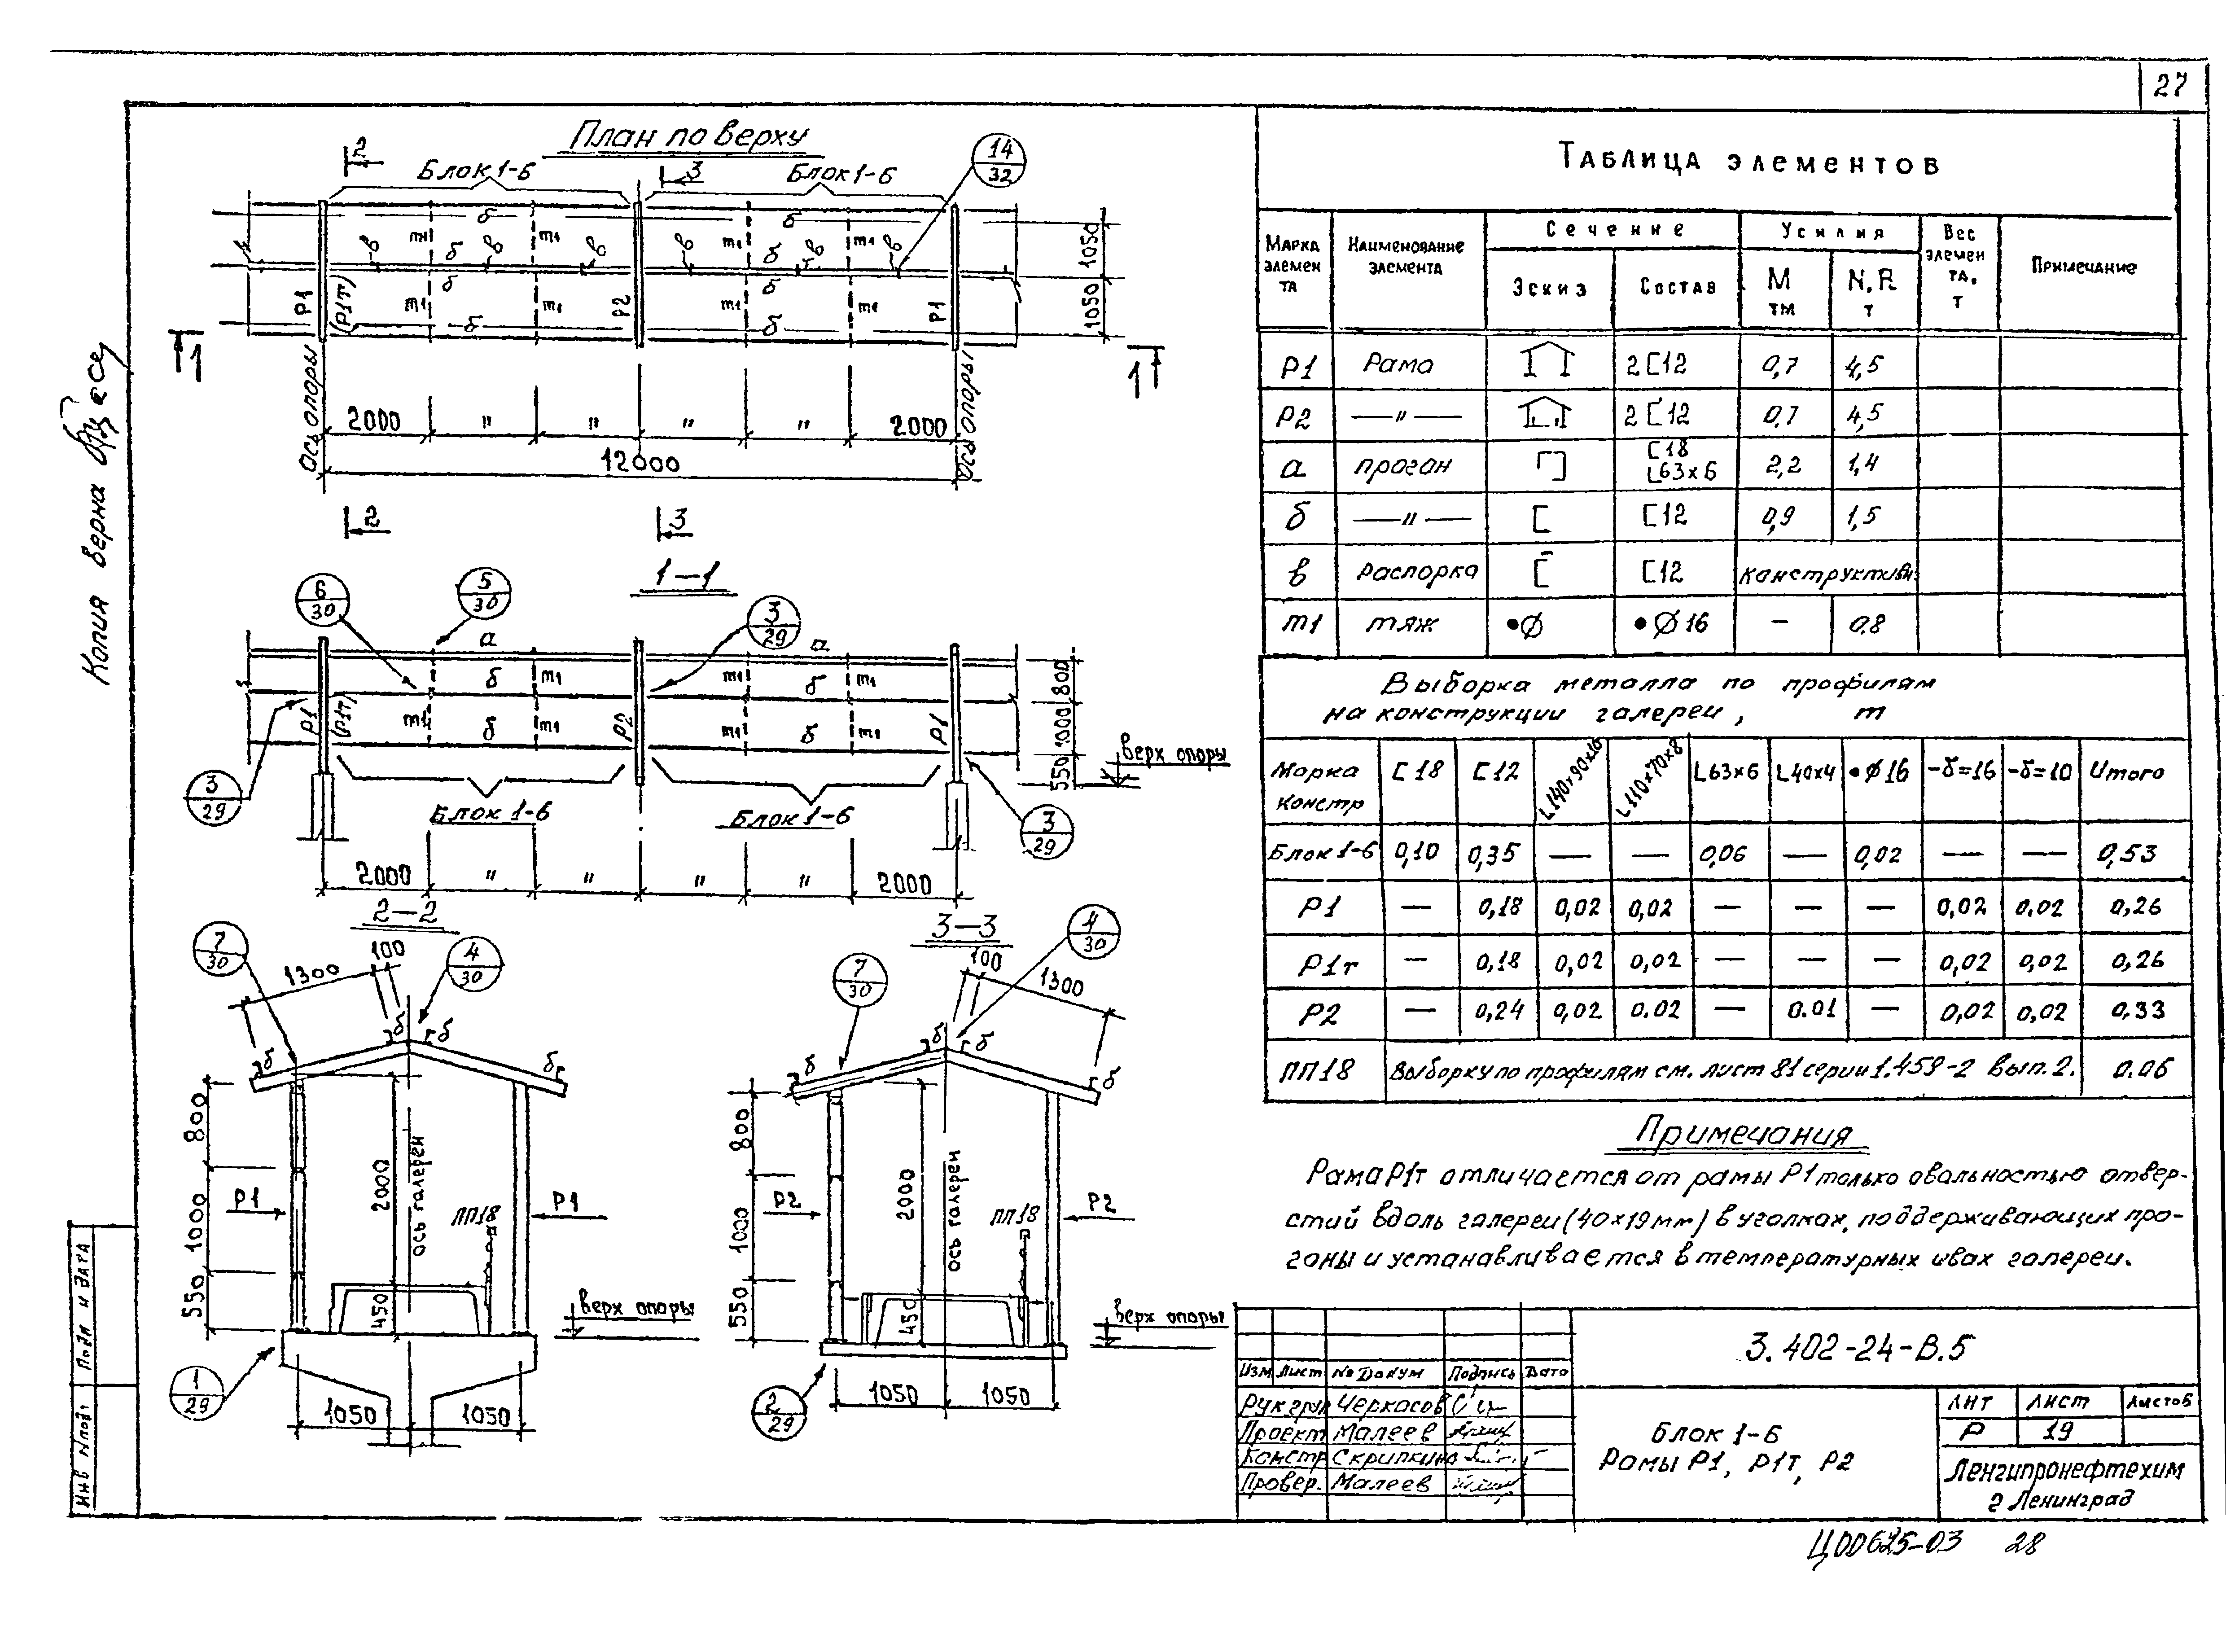 27
План по верху
2
3
Блок 1-6
Блок 1-6
14
32
б
б
в
т1
б
в
т1
в
в
т1
б
в
т1
в
б
б
т1
т1
т1
т1
б
б
Р1
(Р1т)
Р2
Р1
1050
1050
1
1
Ось опоры
Ось опоры
2000
"
"
"
"
2000
12000
2
3
1-1
6
30
5
30
3
29
а
а
б
т1
т1
б
т1
т1
б
т1
т1
б
т1
Р1
(Р1т)
Р2
Р1
800
1000
550
Верх опоры
3
29
3
29
Блок 1-6
Блок 1-6
2000
"
"
"
"
2000
2-2
3-3
7
30
1300
100
4
30
б
б
б
б
800
1000
550
2000
450
ось галереи
ПП18
Р1
Р1
Верх опоры
1
29
1050
1050
7
30
100
1300
4
30
б
б
б
б
800
1000
550
2000
450
ось галереи
ПП18
Р2
Р2
Верх опоры
2
29
1050
1050
Таблица элементов
Марка элемента
Наименование элемента
Сечение
Усилия
Вес элемента, т
Примечание
Эскиз
Состав
М тм
N,R т
Р1 Рама 2[12 0,7 4,5
Р2 —"— 2[12 0,7 4,5
а прогон [18 L63х6 2,2 1,4
б —"— [ [12 0,9 1,5
в Распорка [ [12 Конструктивн
т1 тяж •Ø •Ø16 — 0.8
Выборка металла по профилям
на конструкции галереи, т
Марка констр [18 [12 L140х90х10 L110х70х8 L63х6 L40х4 •Ø16 -δ=16 -δ=10 Итого
Блок 1-6 0,10 0,35 — — 0,06 — 0,02 — — 0,53
Р1 — 0,18 0,02 0,02 — — — 0,02 0.02 0,26
Р1т — 0,18 0,02 0,02 — — — 0,02 0,02 0,26
Р2 — 0,24 0,02 0.02 — 0.01 — 0,02 0,02 0.33
ПП18 Выборку по профилям см. лист 81 серии 1.459-2 Вып.2. 0.06
Примечания
Рама Р1т отличается от рамы Р1 только овальностью отвер-
стий вдоль галереи (40х19мм) в уголках, поддерживающих про-
гоны и устанавливается в температурных швах галереи.
Изм Лист №Докум Подпись Дата
Рук груп Черкасов
Проект Малеев
Констр Скрипкина
Провер. Малеев
3.402-24-В.5
Блок 1-6
Рамы Р1, Р1т, Р2
Лит Лист Листов
Р 19
Ленгипронефтехим
г Ленинград
Ц00625-03 28
Копия верна
Инв №подл
Подп и дата